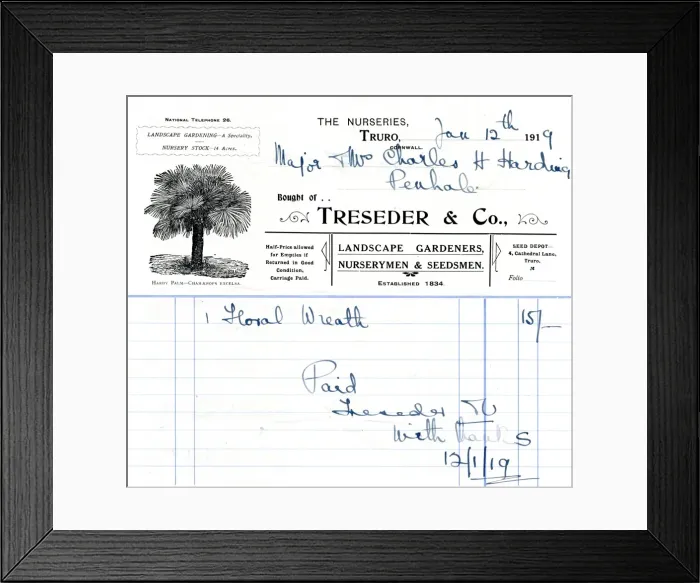 National Telephone 26.
Landscape Gardening—A Speciality.
Nursery Stock—14 Acres.
THE NURSERIES,
TRURO,
CORNWALL.
Jan 12th 1919
Major & Mrs Charles H Harding
Penhale
Bought of . .
TRESEDER & Co.,
Half-Price allowed
for Empties if
Returned in Good
Condition,
Carriage Paid.
LANDSCAPE GARDENERS,
NURSERYMEN & SEEDSMEN.
Established 1834.
SEED DEPOT—
4, Cathedral Lane,
Truro.
Folio
Hardy Palm—Chamærops excelsa.
1 Floral Wreath 15/-
Paid
Treseder
With thanks
12/1/19